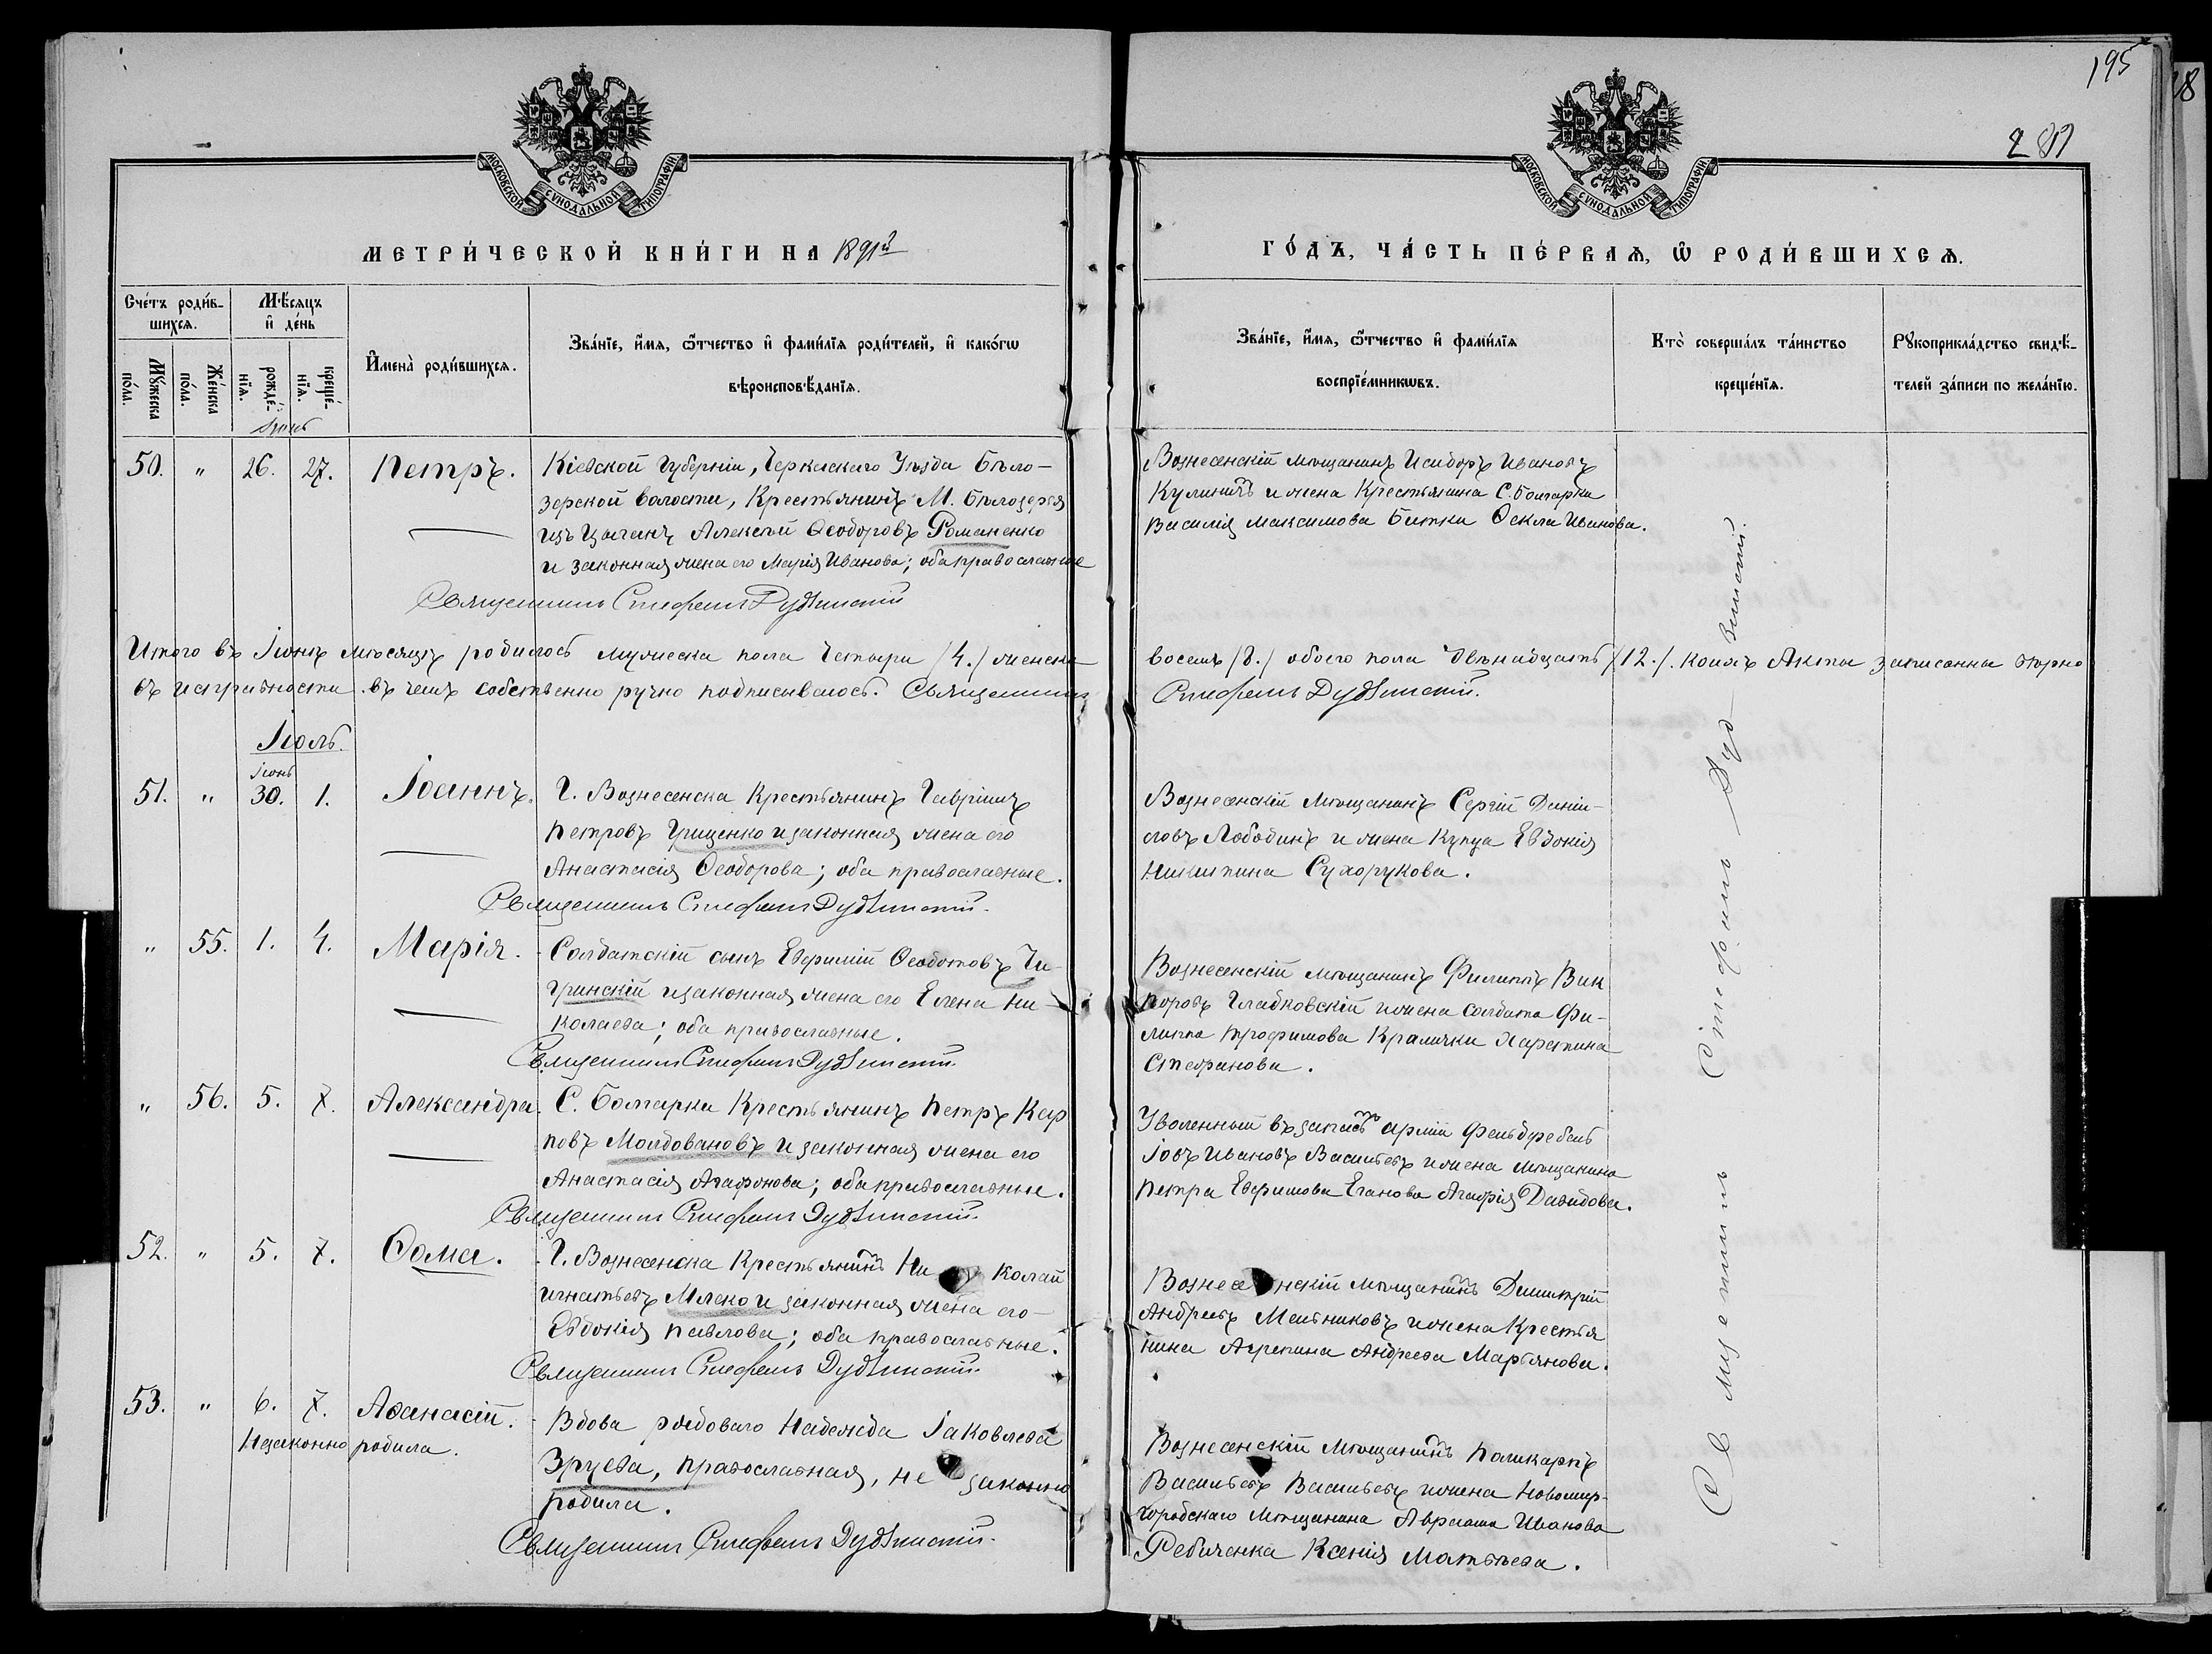 195
18
281
МОСКОВСКОЙ СѴНОДАЛЬНОЙ ТИПОГРАФІИ
МОСКОВСКОЙ СѴНОДАЛЬНОЙ ТИПОГРАФІИ
МЕТРИ́ЧЕСКОЙ КНИ́ГИ НА 1891й
ГО́ДЪ, ЧА́СТЬ ПЕ́РВАѦ, Ѽ РОДИ́ВШИХСѦ.
Сче́тъ роди́в-
шихсѧ.
Мѣ́сѧцъ
и҆ де́нь
Мꙋ́жеска
по́ла.
Же́нска
по́ла.
рожде́-
нїѧ.
креще́-
нїѧ.
И҆мена̀ роди́вшихсѧ.
Зва́нїе, и҆́мѧ, ѻ҆́тчество и҆ фами́лїѧ роди́телей, и҆ како́гѡ
вѣроисповѣ́данїѧ.
Зва́нїе, и҆́мѧ, ѻ҆́тчество и҆ фами́лїѧ
воспрїе́мникѡвъ.
Кто̀ соверша́лъ та́инство
креще́нїѧ.
Рꙋкоприкла́дство свидѣ́-
телей за́писи по жела́нїю.
Іюнь
50. " 26. 27. Петръ. Кіевской Губерніи, Черкаскаго Уѣзда Бѣло-
зерской волости, Крестьянинъ М. Бѣлозерья
изъ Цыганъ Алексѣй Ѳеодоровъ Романенко
и законная жена его Марія Иванова; оба православные
Священникъ Стефанъ Дубинскій
Вознесенскій мѣщанинъ Исидоръ Ивановъ
Кулиничъ и жена Крестьянина С. Болгарки
Василія Максимова Битки Ѳекла Иванова.
Итого въ Іюнѣ мѣсяцѣ родилось мужеска пола Четыри /4./ женска
восемь /8./ обоего пола Двѣнадцать /12./. коихъ Акты записанны вѣрно
въ исправности. въ чемъ собственно ручно подписываюсь. Священникъ
Стефанъ Дубинскій.
Іюль.
Іюнь
51. " 30. 1. Іоаннъ. Г. Вознесенска Крестьянинъ Гавріилъ
Петровъ Грищенко и законная жена его
Анастасія Ѳеодорова; оба православные.
Священникъ Стефанъ Дубинскій.
Вознесенскій мѣщанинъ Сергій Даніи-
ловъ Лободинъ и жена Купца Евдокія
Никитина Сухорукова.
" 55. 1. 4. Марія. Солдатскій сынъ Евфимій Ѳеодотовъ Чи-
гринскій и законная жена его Елена Ни-
колаева; оба православные.
Священникъ Стефанъ Дубинскій.
Вознесенскій мѣщанинъ Филиппъ Вик
торовъ Гладковскій и жена солдата Фи-
липпа Трофимова Кралички Харитина
Стефанова.
" 56. 5. 7. Александра. С. Болгарки Крестьянинъ Петръ Кар
повъ Молдовановъ и законная жена его
Анастасія Агафонова; оба православные.
Священникъ Стефанъ Дубинскій.
Уволенный въ запасъ арміи Фельдфебель
Іовъ Ивановъ Васильевъ и жена мѣщанина
Петра Евфимова Еганова Агафія Давидова.
52. " 5. 7. Ѳома. Г. Вознесенска Крестьянинъ Ни колай
Игнатьевъ Млеко и законная жена его
Евдокія Павлова; оба православные.
Священникъ Стефанъ Дубинскій.
Вознесенскій мѣщанинъ Димитрій
Андреевъ Мельниковъ и жена Крестья
нина Агрепина Андреева Марьянова.
53. " 6. 7. Аѳанасій. Вдова рядоваго Надежда Іаковлева
Незаконно родила.
Зруева, православная, не законно
родила.
Священникъ Стефанъ Дубинскій.
Вознесенскій мѣщанинъ Поликарпъ
Васильевъ Васильевъ и жена Новомир-
городскаго мѣщанина Авраама Иванова
Ребиченка Ксенія Матвѣева.
Священникъ Стефанъ Дубинскій.